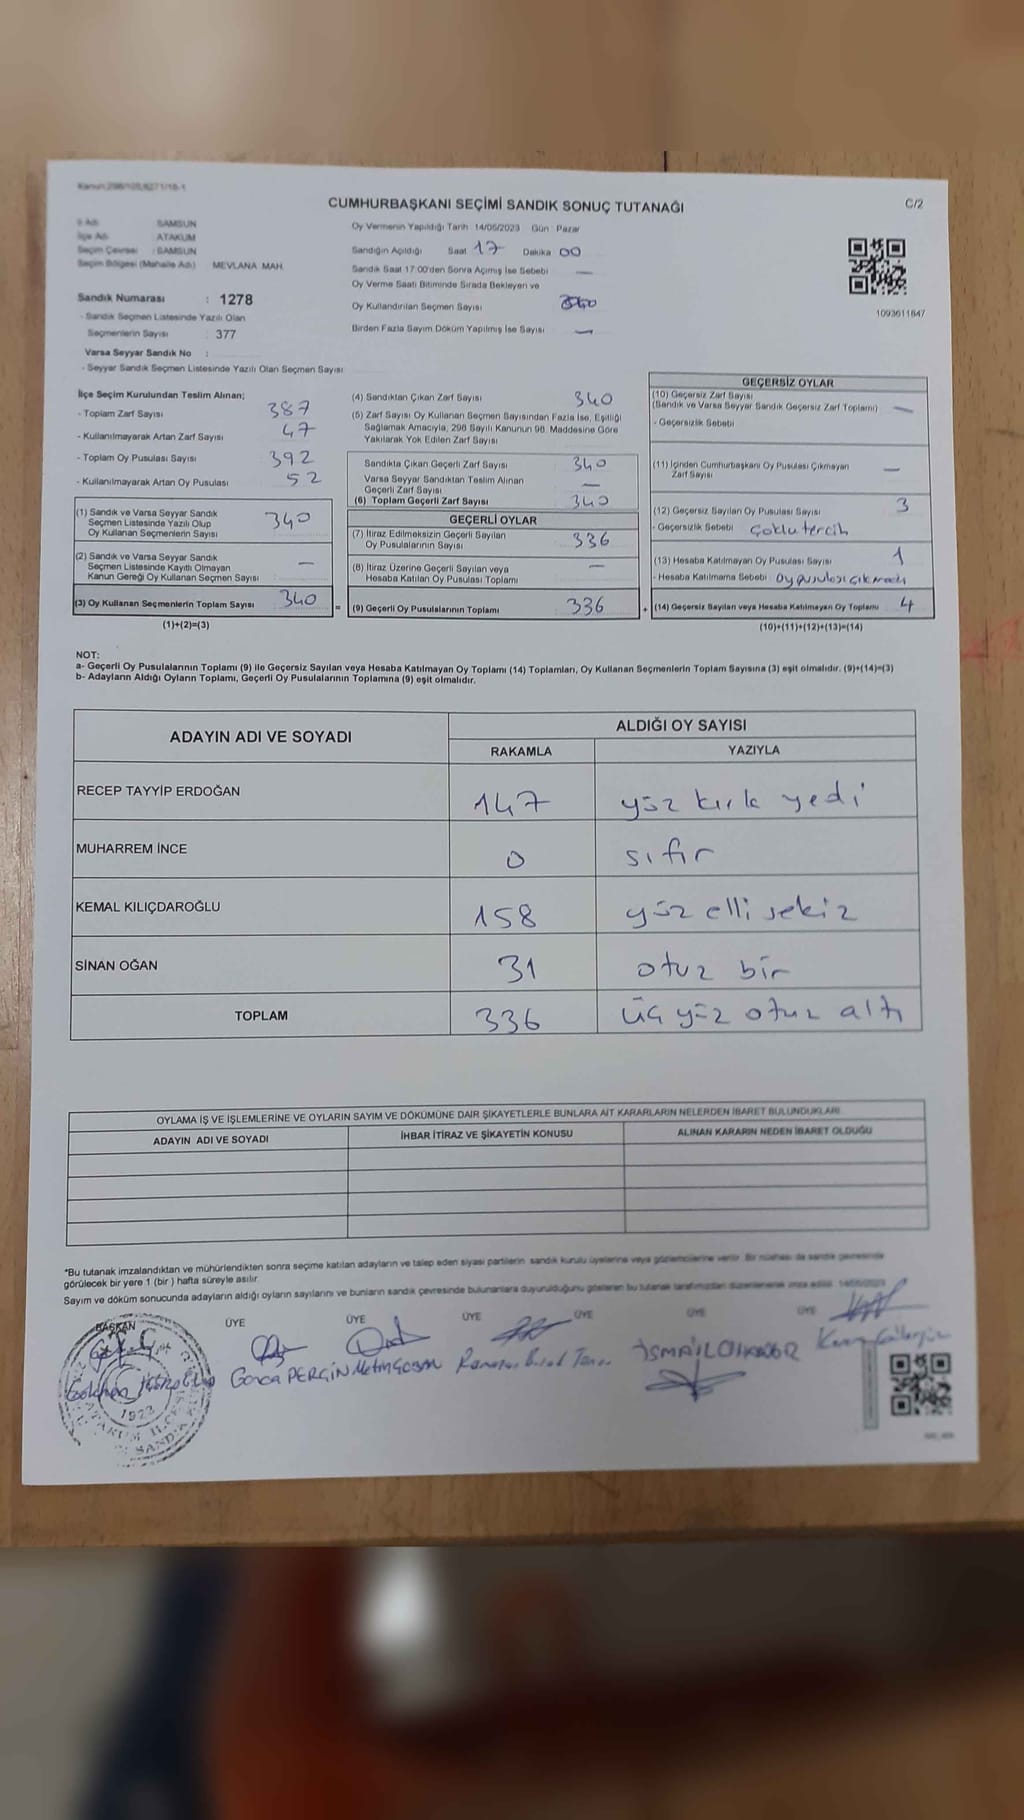 Kanun:298/105,6271/16-1
CUMHURBAŞKANI SEÇİMİ SANDIK SONUÇ TUTANAĞI
C/2
İl Adı : SAMSUN
İlçe Adı : ATAKUM
Seçim Çevresi : SAMSUN
Seçim Bölgesi (Mahalle Adı) MEVLANA MAH.
Sandık Numarası : 1278
- Sandık Seçmen Listesinde Yazılı Olan
Seçmenlerin Sayısı : 377
Varsa Seyyar Sandık No :
- Seyyar Sandık Seçmen Listesinde Yazılı Olan Seçmen Sayısı:
Oy Vermenin Yapıldığı Tarih 14/05/2023 Gün Pazar
Sandığın Açıldığı Saat 17 Dakika 00
Sandık Saat 17:00'den Sonra Açımış İse Sebebi —
Oy Verme Saati Bitiminde Sırada Bekleyen ve
Oy Kullandırılan Seçmen Sayısı
Birden Fazla Sayım Döküm Yapılmış İse Sayısı —
1093611847
İlçe Seçim Kurulundan Teslim Alınan;
- Toplam Zarf Sayısı 387
- Kullanılmayarak Artan Zarf Sayısı 47
- Toplam Oy Pusulası Sayısı 392
- Kullanılmayarak Artan Oy Pusulası 52
(1) Sandık ve Varsa Seyyar Sandık
Seçmen Listesinde Yazılı Olup
Oy Kullanan Seçmenlerin Sayısı 340
(2) Sandık ve Varsa Seyyar Sandık
Seçmen Listesinde Kayıtlı Olmayan
Kanun Gereği Oy Kullanan Seçmen Sayısı —
(3) Oy Kullanan Seçmenlerin Toplam Sayısı 340 =
(1)+(2)=(3)
(4) Sandıktan Çıkan Zarf Sayısı 340
(5) Zarf Sayısı Oy Kullanan Seçmen Sayısından Fazla İse, Eşitliği
Sağlamak Amacıyla, 298 Sayılı Kanunun 98. Maddesine Göre
Yakılarak Yok Edilen Zarf Sayısı
Sandıkta Çıkan Geçerli Zarf Sayısı 340
Varsa Seyyar Sandıktan Teslim Alınan
Geçerli Zarf Sayısı —
(6) Toplam Geçerli Zarf Sayısı 340
GEÇERLİ OYLAR
(7) İtiraz Edilmeksizin Geçerli Sayılan
Oy Pusulalarının Sayısı 336
(8) İtiraz Üzerine Geçerli Sayılan veya
Hesaba Katılan Oy Pusulası Toplamı —
(9) Geçerli Oy Pusulalarının Toplamı 336 +
GEÇERSİZ OYLAR
(10) Geçersiz Zarf Sayısı
(Sandık ve Varsa Seyyar Sandık Geçersiz Zarf Toplamı) —
- Geçersizlik Sebebi
(11) İçinden Cumhurbaşkanı Oy Pusulası Çıkmayan
Zarf Sayısı —
(12) Geçersiz Sayılan Oy Pusulası Sayısı 3
- Geçersizlik Sebebi Çoklu tercih
(13) Hesaba Katılmayan Oy Pusulası Sayısı 1
- Hesaba Katılmama Sebebi Oy pusulası çıkmadı
(14) Geçersiz Sayılan veya Hesaba Katılmayan Oy Toplamı 4
(10)+(11)+(12)+(13)=(14)
NOT:
a- Geçerli Oy Pusulalarının Toplamı (9) ile Geçersiz Sayılan veya Hesaba Katılmayan Oy Toplamı (14) Toplamları, Oy Kullanan Seçmenlerin Toplam Sayısına (3) eşit olmalıdır. (9)+(14)=(3)
b- Adayların Aldığı Oyların Toplamı, Geçerli Oy Pusulalarının Toplamına (9) eşit olmalıdır.
ADAYIN ADI VE SOYADI ALDIĞI OY SAYISI
RAKAMLA YAZIYLA
RECEP TAYYİP ERDOĞAN 147 yüz kırk yedi
MUHARREM İNCE 0 sıfır
KEMAL KILIÇDAROĞLU 158 yüz elli sekiz
SİNAN OĞAN 31 otuz bir
TOPLAM 336 üç yüz otuz altı
OYLAMA İŞ VE İŞLEMLERİNE VE OYLARIN SAYIM VE DÖKÜMÜNE DAİR ŞİKAYETLERLE BUNLARA AİT KARARLARIN NELERDEN İBARET BULUNDUKLARI
ADAYIN ADI VE SOYADI İHBAR İTİRAZ VE ŞİKAYETİN KONUSU ALINAN KARARIN NEDEN İBARET OLDUĞU
*Bu tutanak imzalandıktan ve mühürlendikten sonra seçime katılan adayların ve talep eden siyasi partilerin sandık kurulu üyelerine veya gözlemcilerine verilir. Bir nüshası da sandık çevresinde
görülecek bir yere 1 (bir ) hafta süreyle asılır.
Sayım ve döküm sonucunda adayların aldığı oyların sayılarını ve bunların sandık çevresinde bulunanlara duyurulduğunu gösteren bu tutanak tarafımızdan düzenlenerek imza edildi. 14/05/2023
BAŞKAN ÜYE ÜYE ÜYE ÜYE ÜYE ÜYE
Gonca PERÇİN
1923